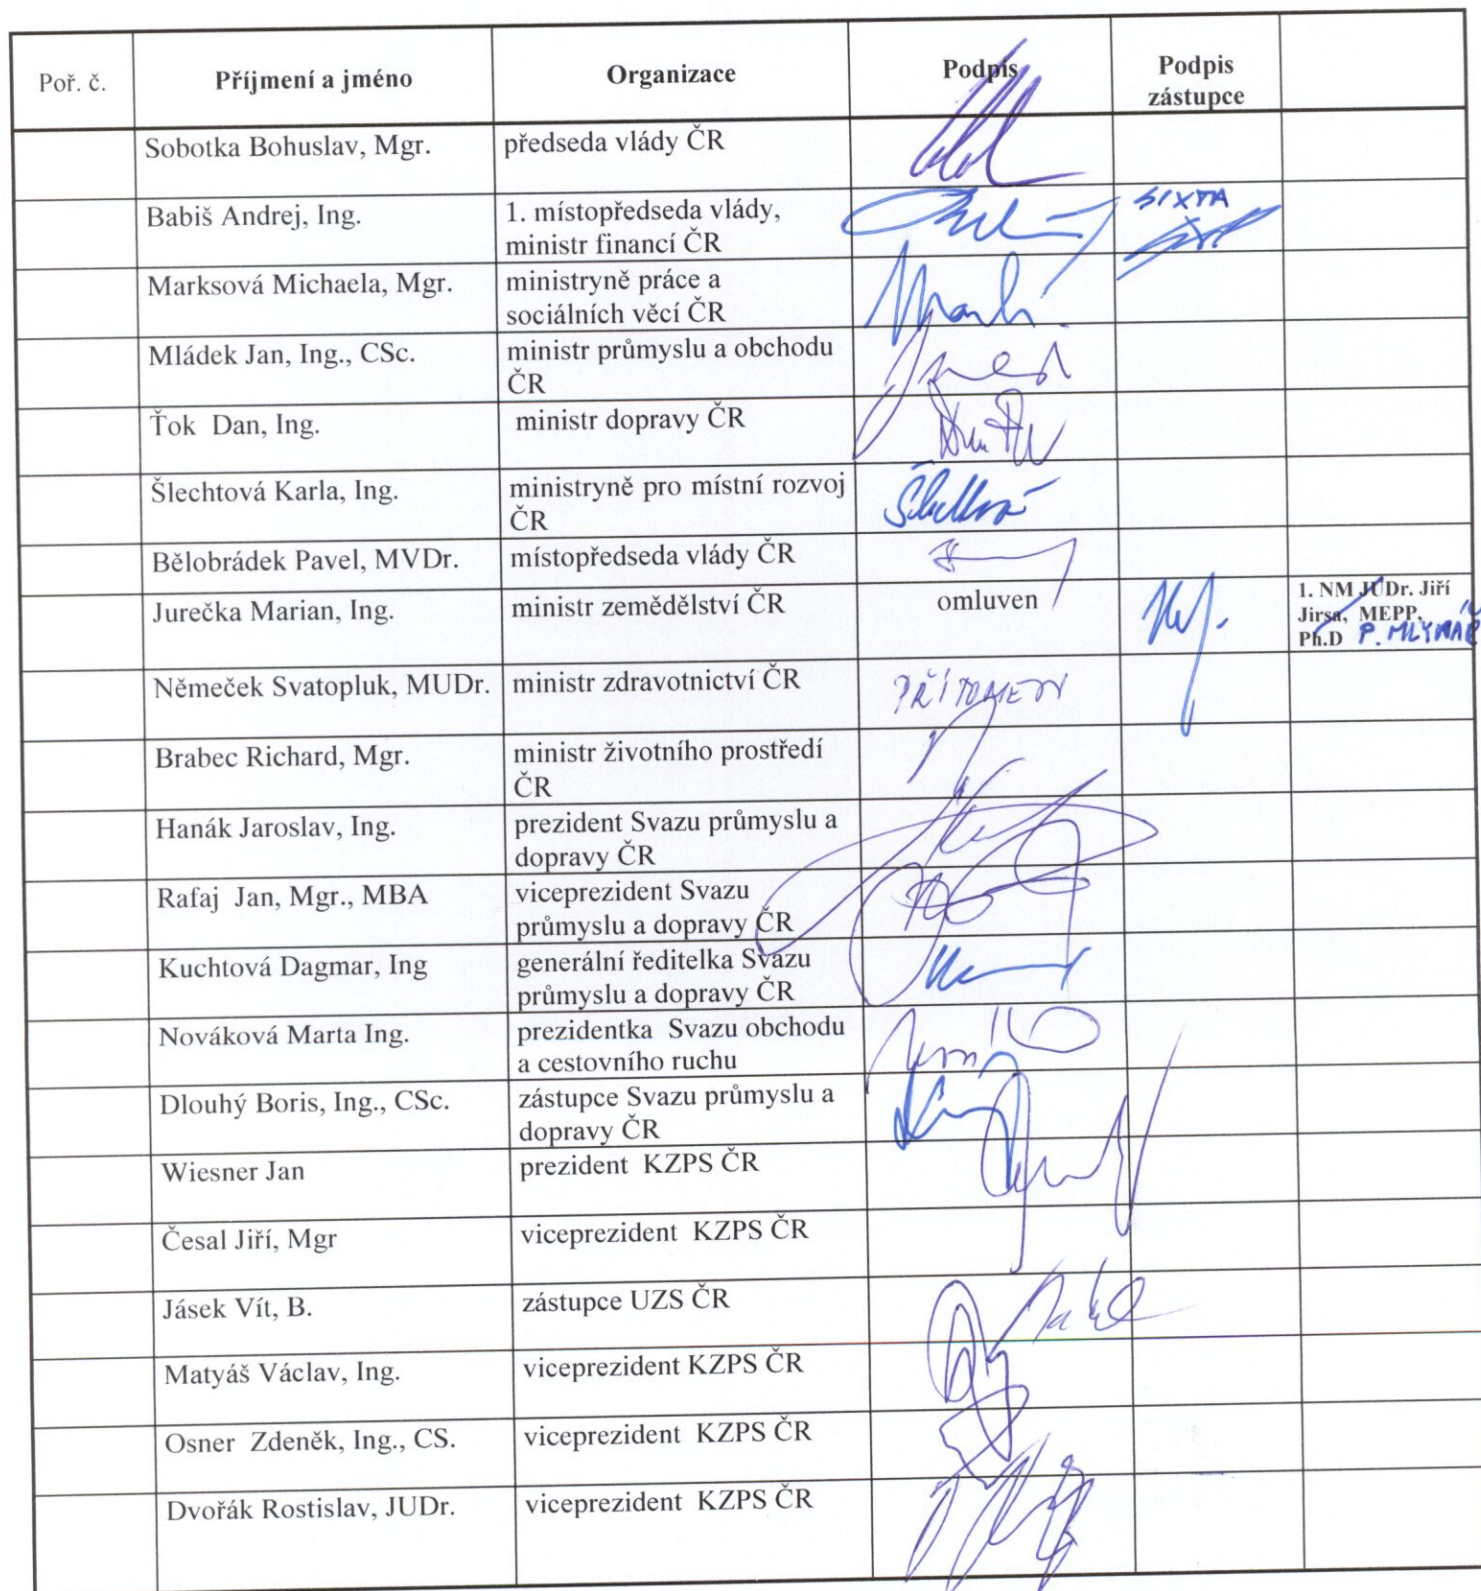 Poř. č. Příjmení a jméno Organizace Podpis Podpis
zástupce
Sobotka Bohuslav, Mgr. předseda vlády ČR
Babiš Andrej, Ing. 1. místopředseda vlády, SIXTA
ministr financí ČR
Marksová Michaela, Mgr. ministryně práce a
sociálních věcí ČR
Mládek Jan, Ing., CSc. ministr průmyslu a obchodu
ČR
Ťok Dan, Ing. ministr dopravy ČR
Šlechtová Karla, Ing. ministryně pro místní rozvoj
ČR
Bělobrádek Pavel, MVDr. místopředseda vlády ČR
Jurečka Marian, Ing. ministr zemědělství ČR omluven 1. NM JUDr. Jiří
Jirsa, MEPP,
Ph.D P. MLYNÁŘ
Němeček Svatopluk, MUDr. ministr zdravotnictví ČR PŘÍTOMEN
Brabec Richard, Mgr. ministr životního prostředí
ČR
Hanák Jaroslav, Ing. prezident Svazu průmyslu a
dopravy ČR
Rafaj Jan, Mgr., MBA viceprezident Svazu
průmyslu a dopravy ČR
Kuchtová Dagmar, Ing generální ředitelka Svazu
průmyslu a dopravy ČR
Nováková Marta Ing. prezidentka Svazu obchodu
a cestovního ruchu
Dlouhý Boris, Ing., CSc. zástupce Svazu průmyslu a
dopravy ČR
Wiesner Jan prezident KZPS ČR
Česal Jiří, Mgr viceprezident KZPS ČR
Jásek Vít, B. zástupce UZS ČR
Matyáš Václav, Ing. viceprezident KZPS ČR
Osner Zdeněk, Ing., CS. viceprezident KZPS ČR
Dvořák Rostislav, JUDr. viceprezident KZPS ČR